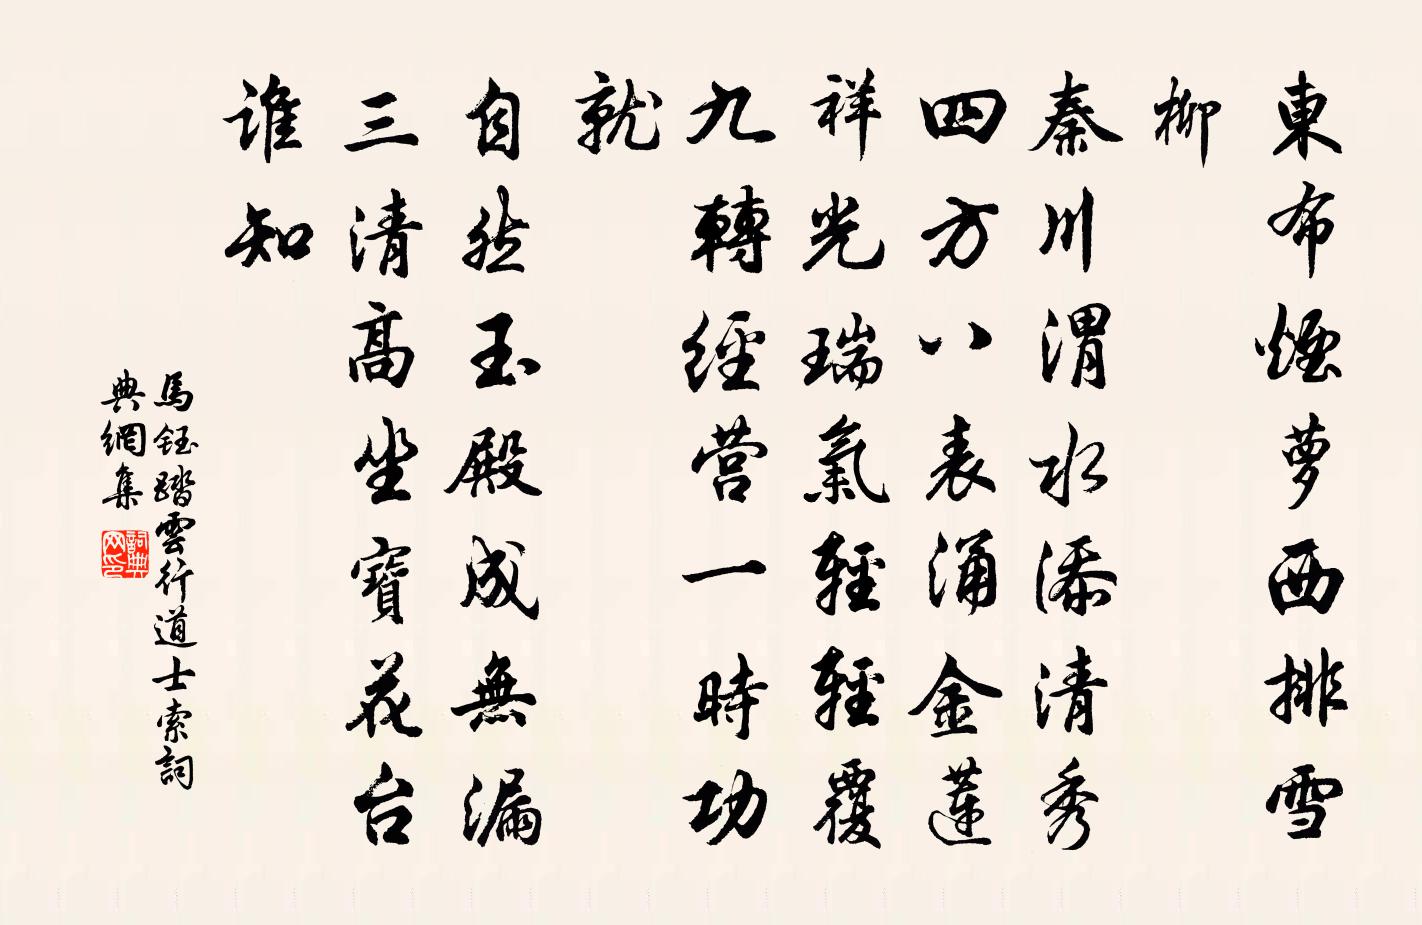 東布煙蘿西排雪
柳
秦川渭水添清秀
四方八表涌金蓮
祥光瑞氣輕輕覆
九轉經营一時功
就
自然玉殿成無漏
三清高坐寶花台
誰知
馬鈺踏雲行道士索詞
典網集
詞典网印